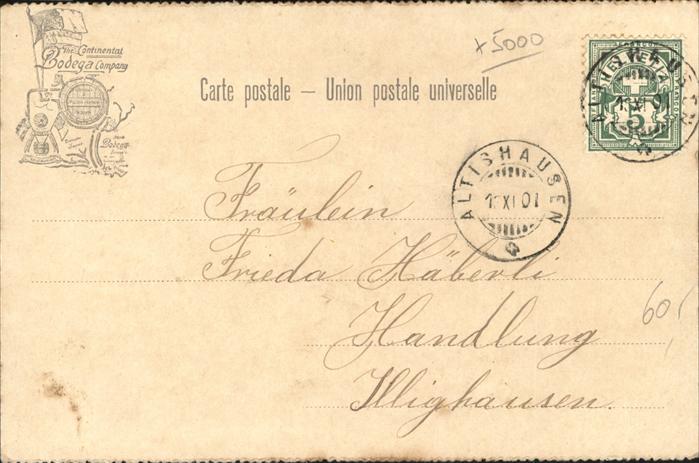 The Continental
Bodega Company
Bodega
x5000
Carte postale – Union postale universelle
ALTISHAUSEN
XI 01
5
ALTISHAUSEN
XI 01
Fräulein
Frieda Häberli
Handlung
Illighausen.
60